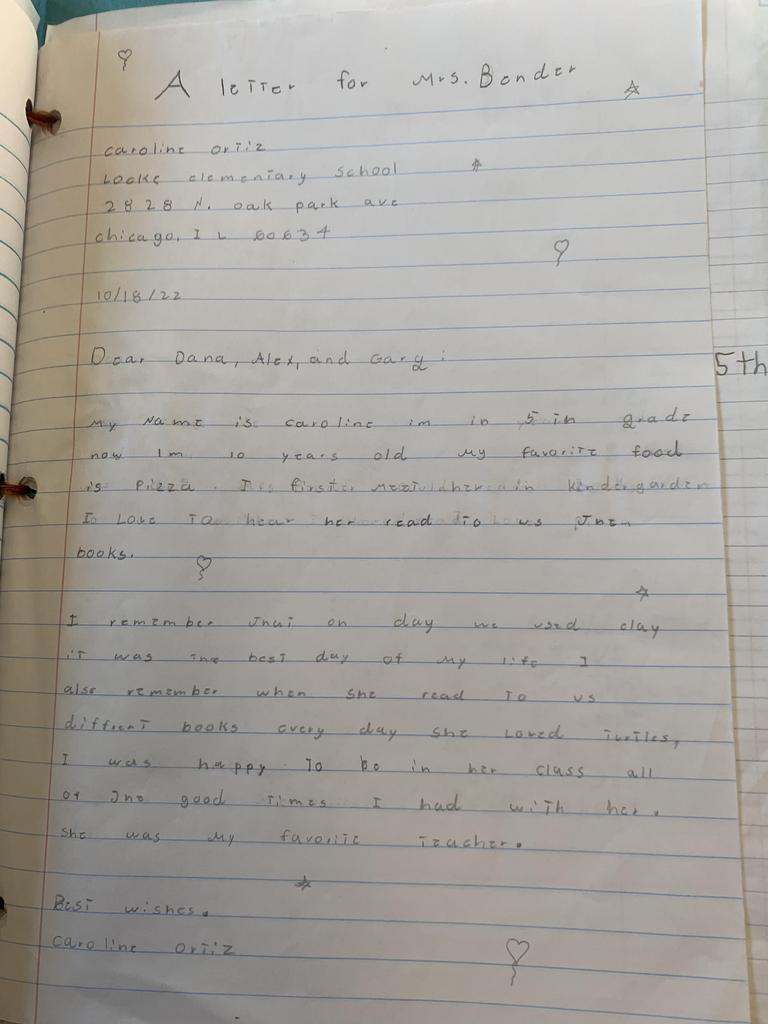 A letter for Mrs. Bender
caroline ortiz
Locke elementary school
2828 N. oak park ave
chicago, IL 60634
10/18/22
Dear Dana, Alex, and Gary:
5th
My Name is caroline im in 5 in grade
now Im 10 years old My favorite food
is Pizza. I first met her in kindergarden
I Love To hear her read To us
books.
I remember on day we used clay
it was the best day of My life I
also remember when she read To us
different books every day she Loved turtles,
I was happy To be in her class all
of the good times I had with her.
she was My favorite teacher.
Best wishes.
caroline ortiz